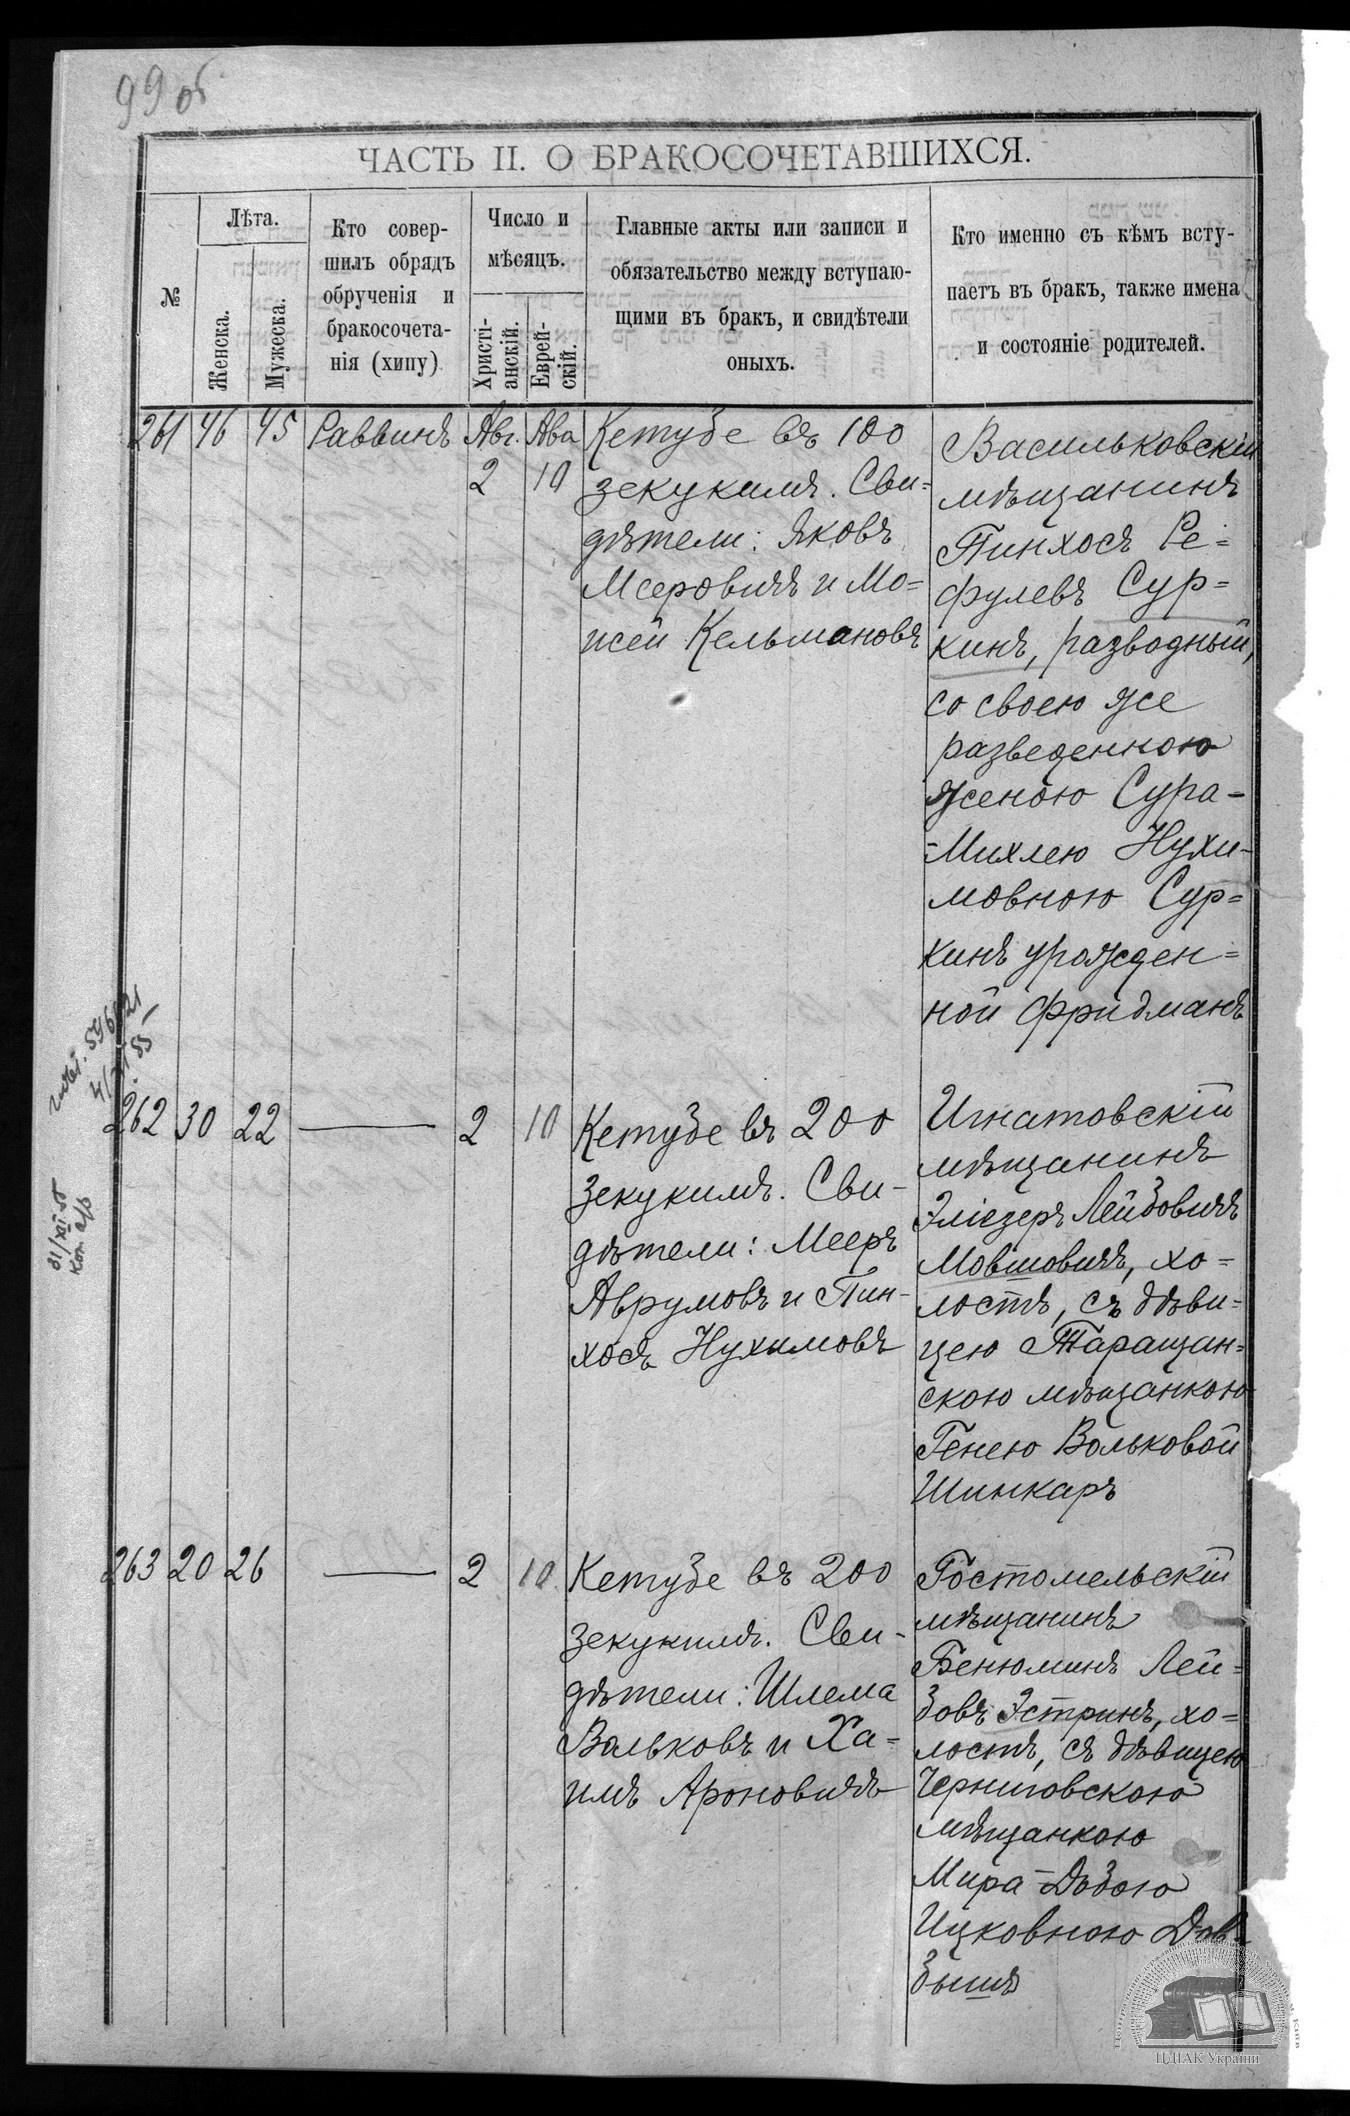 99 об
ЧАСТЬ II. О БРАКОСОЧЕТАВШИХСЯ.
№
Лѣта.
Женска.
Мужеска.
Кто совер-
шилъ обрядъ
обрученія и
бракосочета-
нія (хипу)
Число и
мѣсяцъ.
Христі-
анскій.
Еврей-
скій.
Главные акты или записи и
обязательство между вступаю-
щими въ бракъ, и свидѣтели
оныхъ.
Кто именно съ кѣмъ всту-
паетъ въ бракъ, также имена
и состояніе родителей.
261 46 45 Раввинъ Авг. 2 Ава 10
Кетубе въ 100
зекукимъ. Сви-
дѣтели: Яковъ
Мееровичъ и Мо-
исей Кельмановъ
Васильковскій
мѣщанинъ
Пинхосъ Ре-
фулевъ Сур-
кинъ, разводный,
со своею же
разведенною
женою Сура-
-Михлею Нухи-
мовною Сур-
кинъ урожден-
ной Фридманъ
262 30 22 — 2 10
Кетубе въ 200
зекукимъ. Сви-
дѣтели: Мееръ
Аврумовъ и Пин-
хосъ Нухимовъ
Игнатовскій
мѣщанинъ
Эліезеръ Лейбовичъ
Мовшовичъ, хо-
лостъ, съ дѣви-
цею Таращан-
скою мѣщанкою
Генею Вольковой
Шинкаръ
263 20 26 — 2 10
Кетубе въ 200
зекукимъ. Сви-
дѣтели: Шлема
Вольковъ и Ха-
имъ Ароновичъ
Гостомельскій
мѣщанинъ
Бенюминъ Лей-
бовъ Эстринъ, хо-
лостъ, съ дѣвицею
Черниговскою
мѣщанкою
Мира-Дъбою
Ицковною Дов-
бышъ
ЦДІАК України